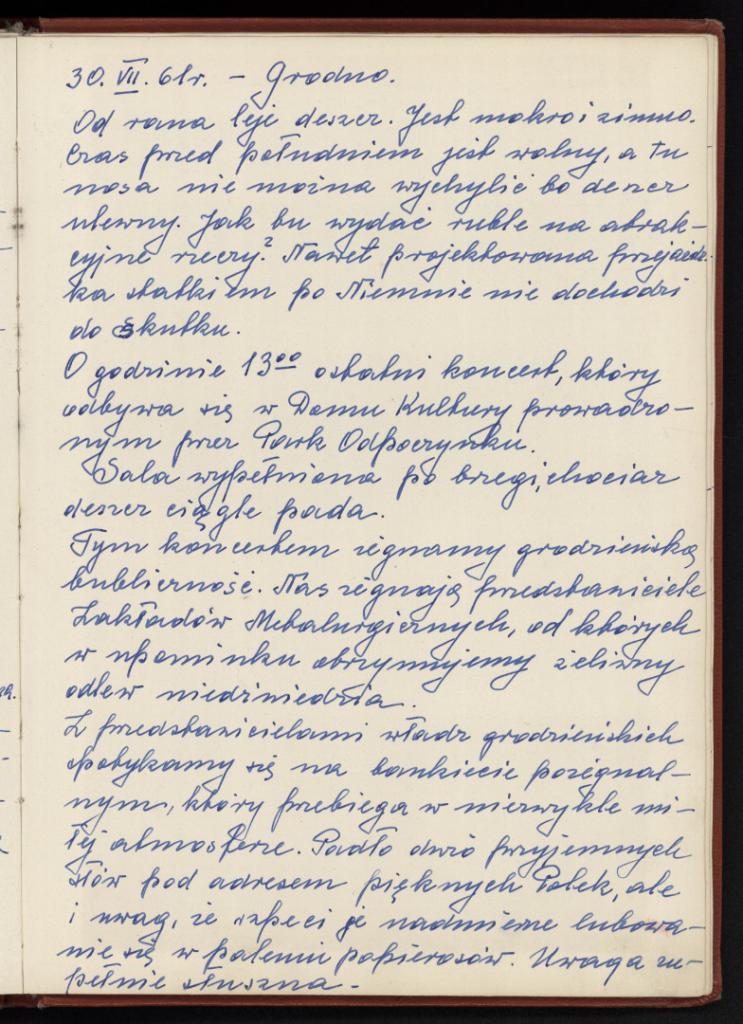 30. VII. 61r. – Grodno.
Od rana leje deszcz. Jest mokro i zimno.
Czas przed południem jest wolny, a tu
nosa nie można wychylić bo deszcz
ulewny. Jak tu wydać ruble na atrak-
cyjne rzeczy? Nawet projektowana przejażdż-
ka statkiem po Niemnie nie dochodzi
do skutku.
O godzinie 13⁰⁰ ostatni koncert, który
odbywa się w Domu Kultury prowadzo-
nym przez Park Odpoczynku.
Sala wypełniona po brzegi, chociaz
deszcz ciągle pada.
Tym koncertem zegnamy grodzieńską
publiczność. Nas zegnają przedstawiciele
Zakładów Metalurgicznych, od których
w upominku otrzymujemy żeliwny
odlew niedźwiedzia.
Z przedstawicielami władz grodzieńskich
spotykamy się na bankiecie pozegnal-
nym, który przebiega w niezwykle mi-
łej atmosferze. Padło dużo przyjemnych
słów pod adresem pięknych Polek, ale
i uwag, że szpeci je nadmierne lubowa-
nie się w paleniu papierosów. Uwaga zu-
pełnie słuszna. –